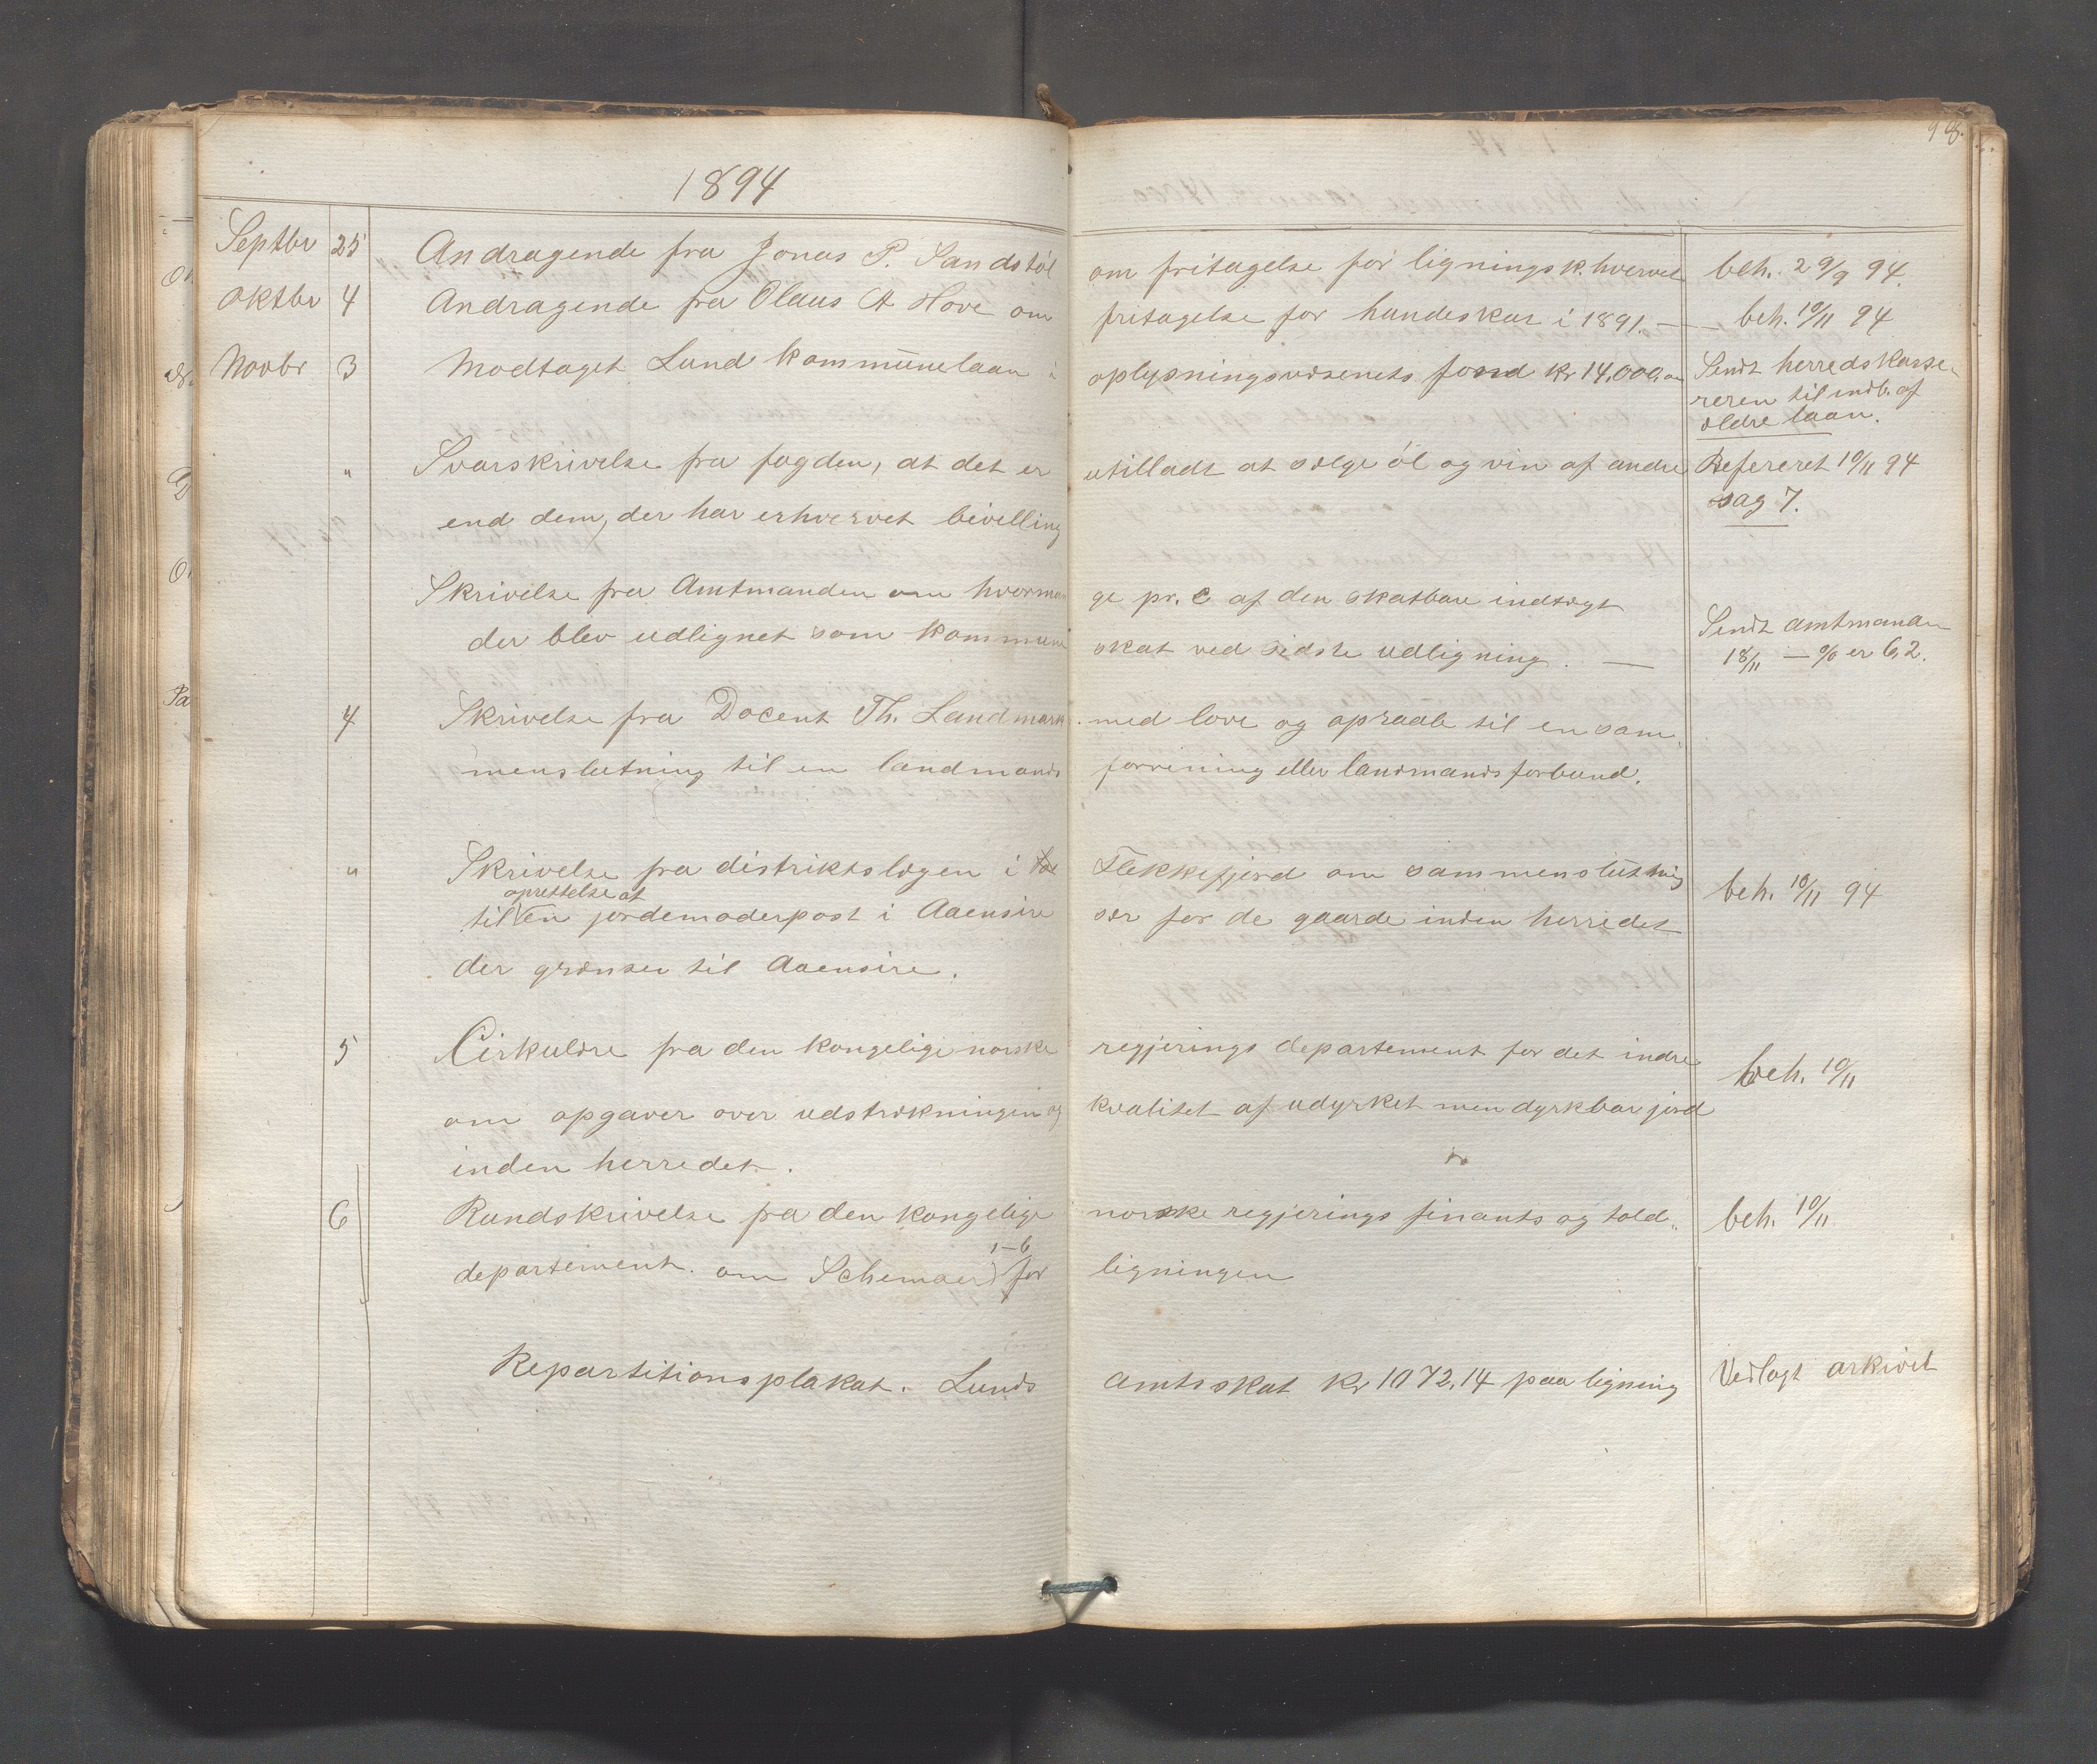 98.
1894
Septbr 25 Andragende fra Jonas P. Sandstöl om fritagelse for ligningsk.hvervet beh. 29/9 94.
Oktbr 4 Andragende fra Olaus A Hove om fritagelse for hundeskat i 1891. — beh. 10/11 94
Novbr 3 Modtaget Lund kommunelaan i oplysningsvæsenets fond kr 14,000,00 Sendt herredskasse-
reren til indb. af
ældre laan.
" Svarskrivelse fra fogden, at det er utilladt at sælge öl og vin af andre Refereret 10/11 94
end dem, der har erhvervet bevilling sag 7.
Skrivelse fra Amtmanden om hvorman ge pr. c af den skatbare indtægt
der blev udlignet som kommune skat ved sidste udligning. — Sendt amtmanden
18/11 — % er 6,2.
4 Skrivelse fra Docent Th. Landmark med love og opraab til en sam-
menslutning til en landmands forening eller landmandsforbund.
" Skrivelse fra distriktslægen i Flekkefjord om sammenslutning
til oprettelse af en jordemoderpost i Aaensire sær for de gaarde inden herredet beh. 10/11 94
der grænser til Aaensire.
5 Cirkulære fra den kongelige norske regjerings departement for det indre beh. 10/11
om opgaver over udstrækningen og kvalitet af udyrket men dyrkbar jord
inden herredet.
6 Rundskrivelse fra den kongelige norske regjerings finants og told- beh. 10/11
departement. om Schemaer 1–6 for ligningen
Repartitionsplakat. Lunds amtsskat kr 1072,14 paa ligning Vedlagt arkivet